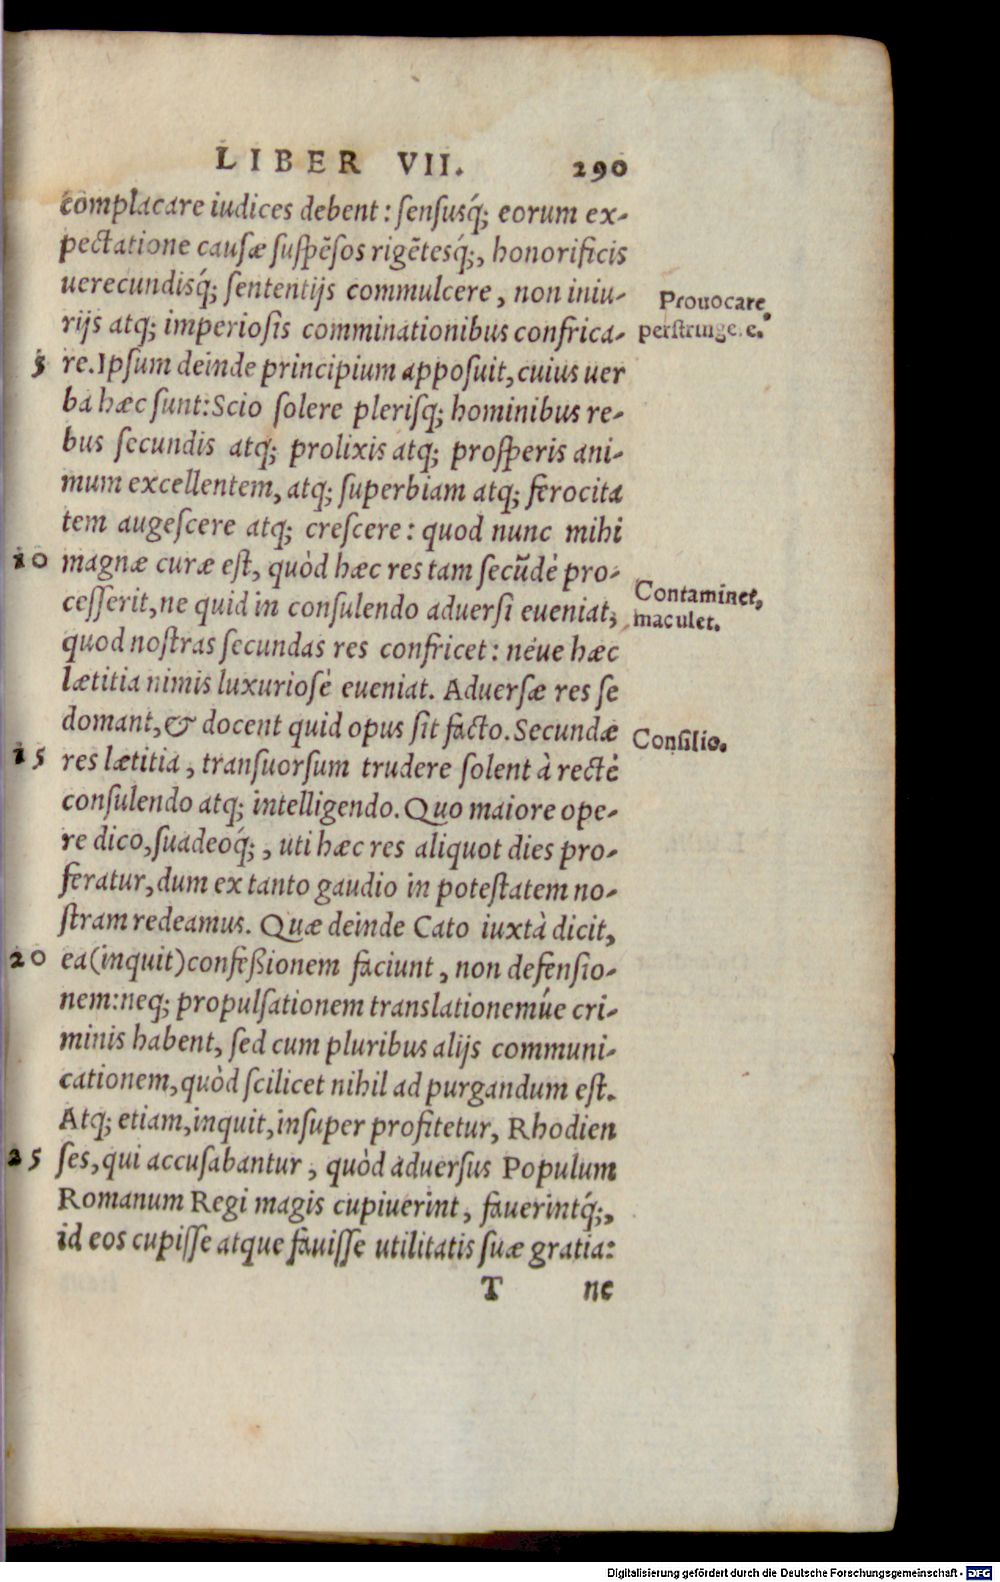 LIBER VII. 290
complacare iudices debent: ſenſusq́; eorum ex-
pectatione cauſæ ſuſpẽſos rigẽtesq́;, honorificis
uerecundisq́; ſententijs commulcere, non iniu-
Prouocare,
rijs atq; imperioſis comminationibus confrica-
perſtringere.
5 re. Ipſum deinde principium appoſuit, cuius uer
ba hæc ſunt: Scio ſolere pleriſq; hominibus re-
bus ſecundis atq; prolixis atq; proſperis ani-
mum excellentem, atq; ſuperbiam atq; ferocita
tem augeſcere atq; creſcere: quod nunc mihi
10 magnæ curæ eſt, quòd hæc res tam ſecũdè pro-
Contaminet,
ceſſerit, ne quid in conſulendo aduerſi eueniat,
maculet.
quod noſtras ſecundas res confricet: néue hæc
lætitia nimis luxurioſè eueniat. Aduerſæ res ſe
domant, & docent quid opus ſit facto. Secundæ
Conſilio.
15 res lætitia, tranſuorſum trudere ſolent à rectè
conſulendo atq; intelligendo. Quo maiore ope-
re dico, ſuadeoq́;, uti hæc res aliquot dies pro-
feratur, dum ex tanto gaudio in poteſtatem no-
ſtram redeamus. Quæ deinde Cato iuxtà dicit,
20 ea (inquit) confeßionem faciunt, non defenſio-
nem: neq; propulſationem translationemúe cri-
minis habent, ſed cum pluribus alijs communi-
cationem, quòd ſcilicet nihil ad purgandum eſt.
Atq; etiam, inquit, inſuper profitetur, Rhodien
25 ſes, qui accuſabantur, quòd aduerſus Populum
Romanum Regi magis cupiuerint, fauerintq́;,
id eos cupiſſe atque fauiſſe utilitatis ſuæ gratia:
T ne
Digitalisierung gefördert durch die Deutsche Forschungsgemeinschaft - DFG